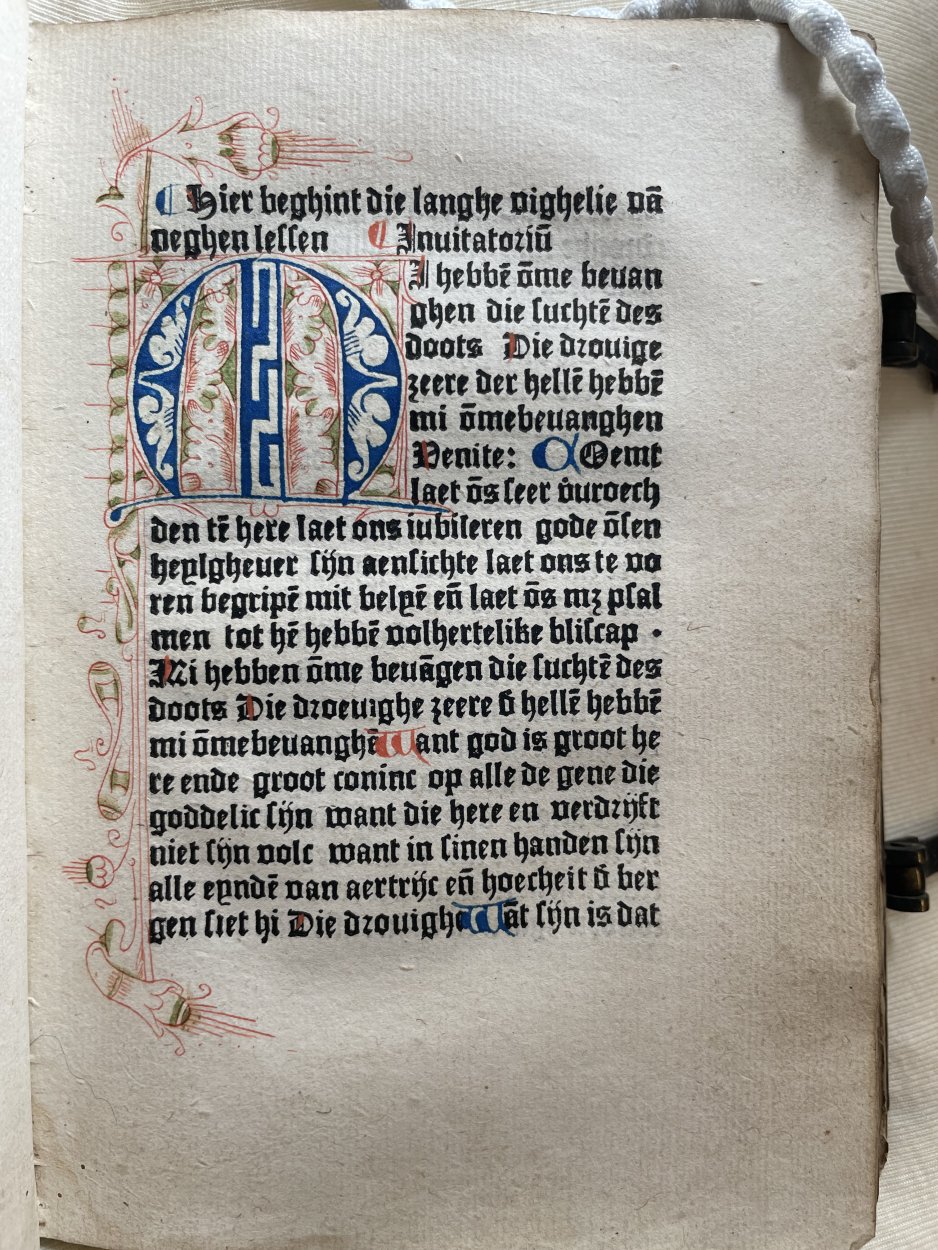 ¶ Hier beghint die langhe vighelie vā
neghen lessen ¶ Inuitatoriū
MI hebbē ōme beuan
ghen die suchtē des
doots Die drouige
zeere der hellē hebbē
mi ōmebeuanghen
Venite: COemt
laet ōs seer v̄uroech
den tē here laet ons iubileren gode ōsen
heylgheuer sijn aensichte laet ons te vo
ren begripē mit belyē eñ laet ōs mꝫ psal
men tot hē hebbē volhertelike bliscap •
Mi hebben ōme beuāgen die suchtē des
doots Die droeuighe zeere đ hellē hebbē
mi ōmebeuanghē Want god is groot he
re ende groot coninc op alle de gene die
goddelic sijn want die here en verdrijft
niet sijn volc want in sinen handen sijn
alle eyndē van aertrijc eñ hoecheit đ ber
gen siet hi Die drouighe Wāt sijn is dat